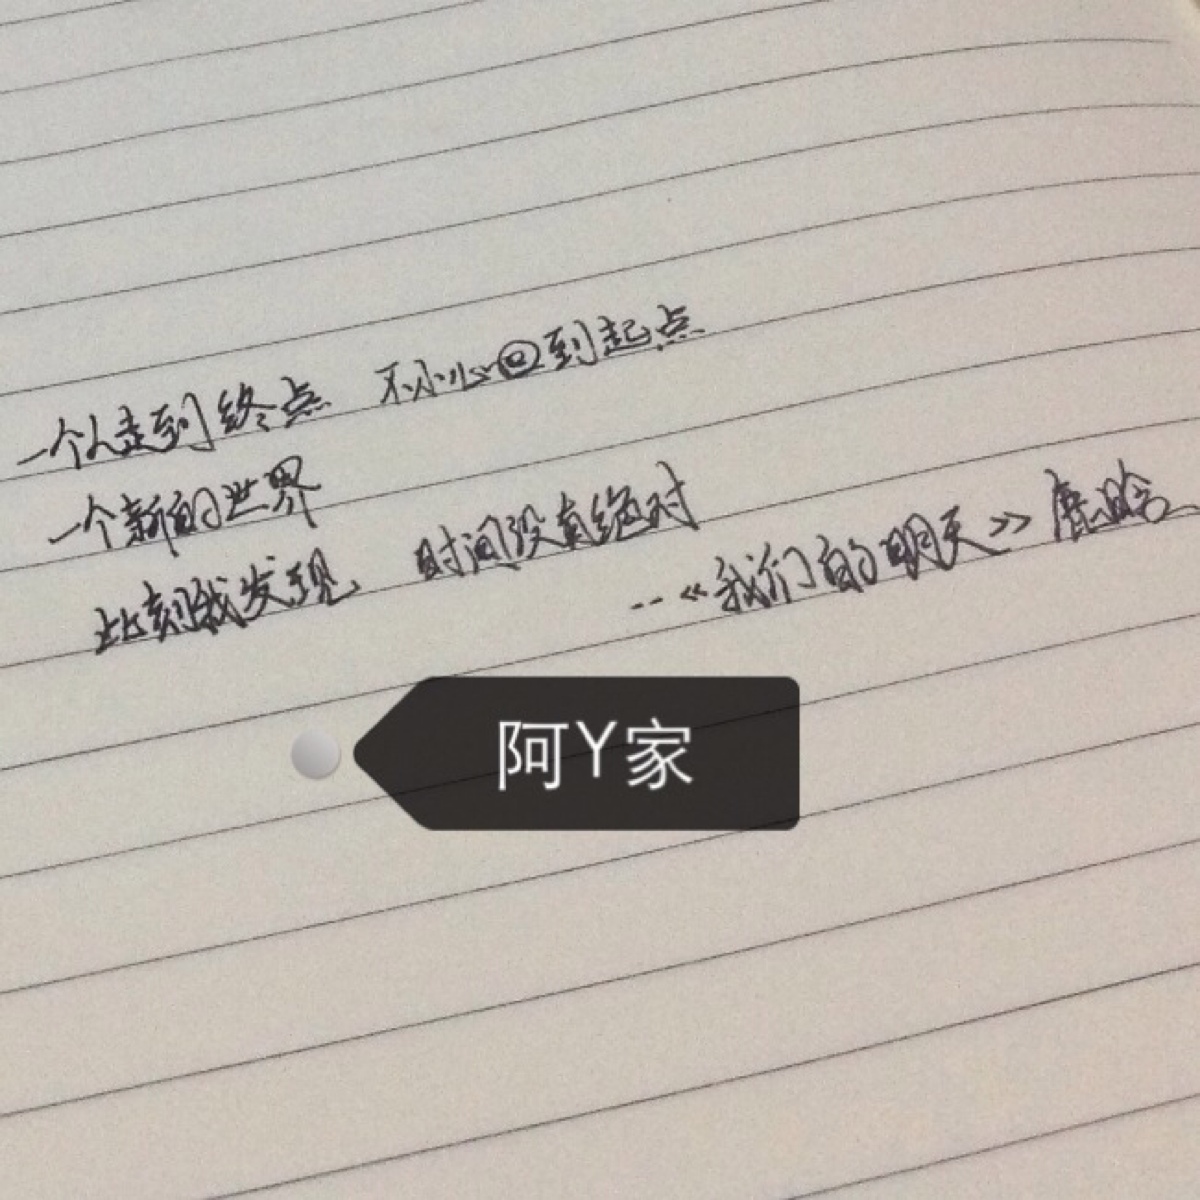 一个人走到终点 不小心回到起点
一个新的世界
此刻我发现 时间没有绝对
--《我们的明天》鹿晗
阿Y家